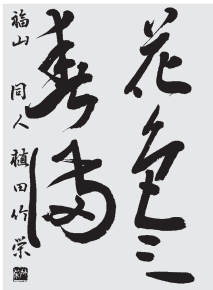 花色三
春満
福山 同人 植田竹栄